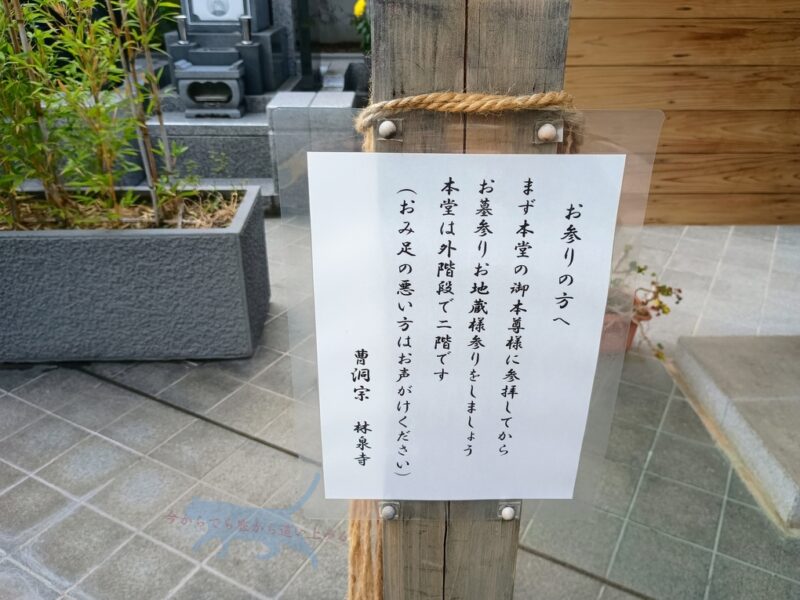 お参りの方へ
まず本堂の御本尊様に参拝してから
お墓参りお地蔵様参りをしましょう
本堂は外階段で二階です
(おみ足の悪い方はお声がけください)
曹洞宗　林泉寺